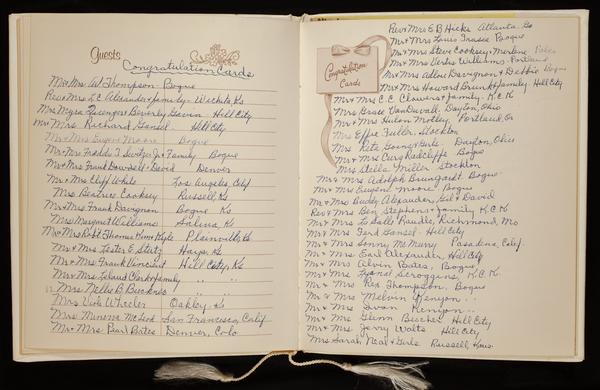 Guests
Congratulation Cards
Mr & Mrs Art Thompson Bogue
Rev & Mrs L C Alexander & family - Wichita, Ks
Mrs Myra Passenger & Beverly Gavin Hill City
Mr & Mrs Richard Gansel. Hill City
Mr & Mrs Eugene Moore Bogue
Mr & Mrs Freddy T. Switzer Jr & Family Bogue
Mr & Mrs Frank Dowdell & David Denver
Mr & Mrs Cliff White Los Angeles Calif
Mrs Beatrice Cooksey Russell Ks
Mr & Mrs Frank Davignon Bogue Ks
Mrs Margaret Williams Salina, Ks
Mr & Mrs Robt Thomas Plainville Ks
Mr & Mrs Lester E. Stutz Hays, Ks
Mr & Mrs Frank Vincent Hill City, Ks
Mr & Mrs Leland Clark & family " "
Mrs Nellie B Buckner " "
Mrs Viola Wheeler Oakley Ks
Mrs Minerva McLeod San Francisco, Calif
Mr & Mrs Pearl Bates Denver, Colo
Congratulation
Cards
Rev & Mrs E B Hicks Atlanta Ga
Mr & Mrs Louis Trasee Bogue
Mr & Mrs Steve Cooksey & Merlene Palco
Mr & Mrs Vertes Williams. Portland
Mr & Mrs Adlou Davignon & Debbie Bogue
Mr & Mrs Howard Brunk & family. Hill City
Mr & Mrs C.C. Clowers & Family. K.C.K
Mrs Grace VanDuvall. Dayton, Ohio
Mr & Mrs Hulon Motley, Portland, Or
Mrs Effie Fuller. Stockton
Mrs Reta Young & Girls. Dayton, Ohio
Mr & Mrs Curg Radcliffe Bogue
Mrs Stella Miller Stockton
Mr & Mrs Adolph Brungardt. Bogue
Mr & Mrs Eugene Moore Bogue
Mr & Mrs Buddy Alexander, Gil & David
Rev & Mrs Ben Stephens & family K.C.K
Mr & Mrs La Salle Raudls, Richmond, Mo
Mr & Mrs Ferd Gansel - Hill City
Mr & Mrs Sonny McMurry Pasadena, Calif.
Mr & Mrs Earl Alexander, Hill City
Mr & Mrs Alvin Bates, Bogue,
Mr & Mrs Lyonal Scroggins, K.C.K
Mr & Mrs Rex Thompson. Bogue
Mr & Mrs Melvin Kenyon "
Mr & Mrs Ivan Kenyon "
Mr & Mrs Glenn Bircher Hill City
Mr & Mrs Jerry Walts Hill City
Mrs Sarah Neal & Girls Russell, Kans.